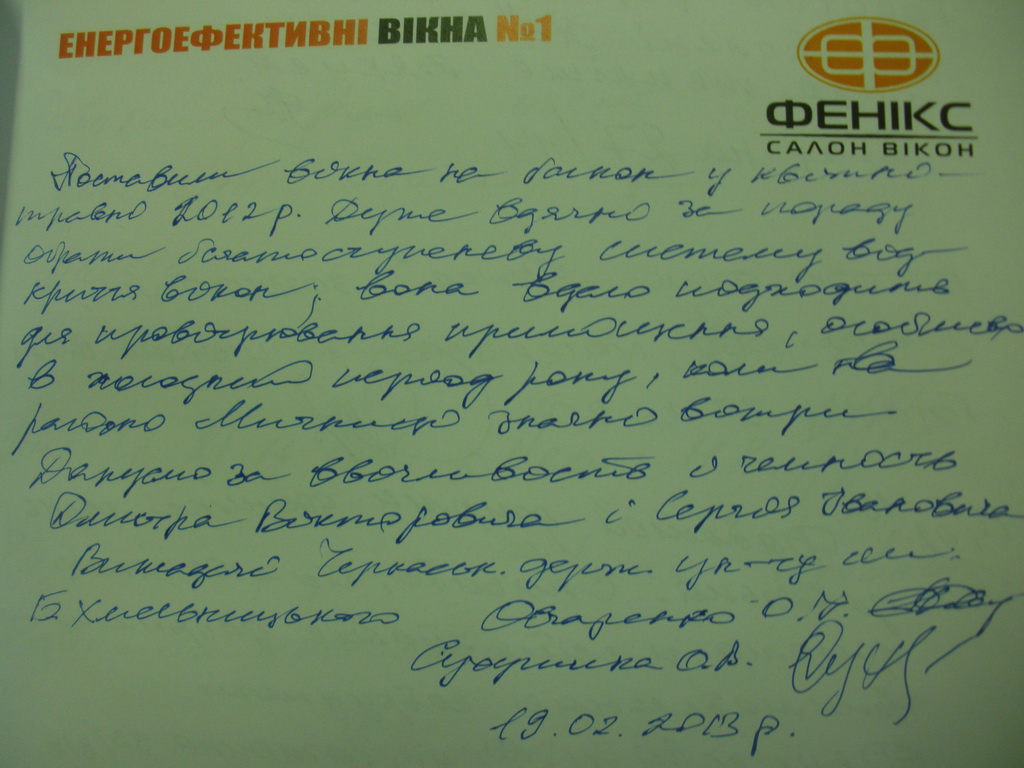 ЕНЕРГОЕФЕКТИВНІ ВІКНА №1
ФЕНІКС
САЛОН ВІКОН
Поставили вікна на балкон у квітні-
травні 2012 р. Дуже вдячні за пораду
обрати багатоступеневу систему від-
криття вікон; вона вдало підходить
для провітрювання приміщення, особливо
в холодний період року, коли на
районі Митниця значні вітри
Дякуємо за ввічливость і чемность
Дмитра Вікторовича і Сергія Івановича
Викладачі Черкаськ. держ. ун-ту ім.
Б Хмельницького Овчаренко О.
О.В.
19.02.2013 р.